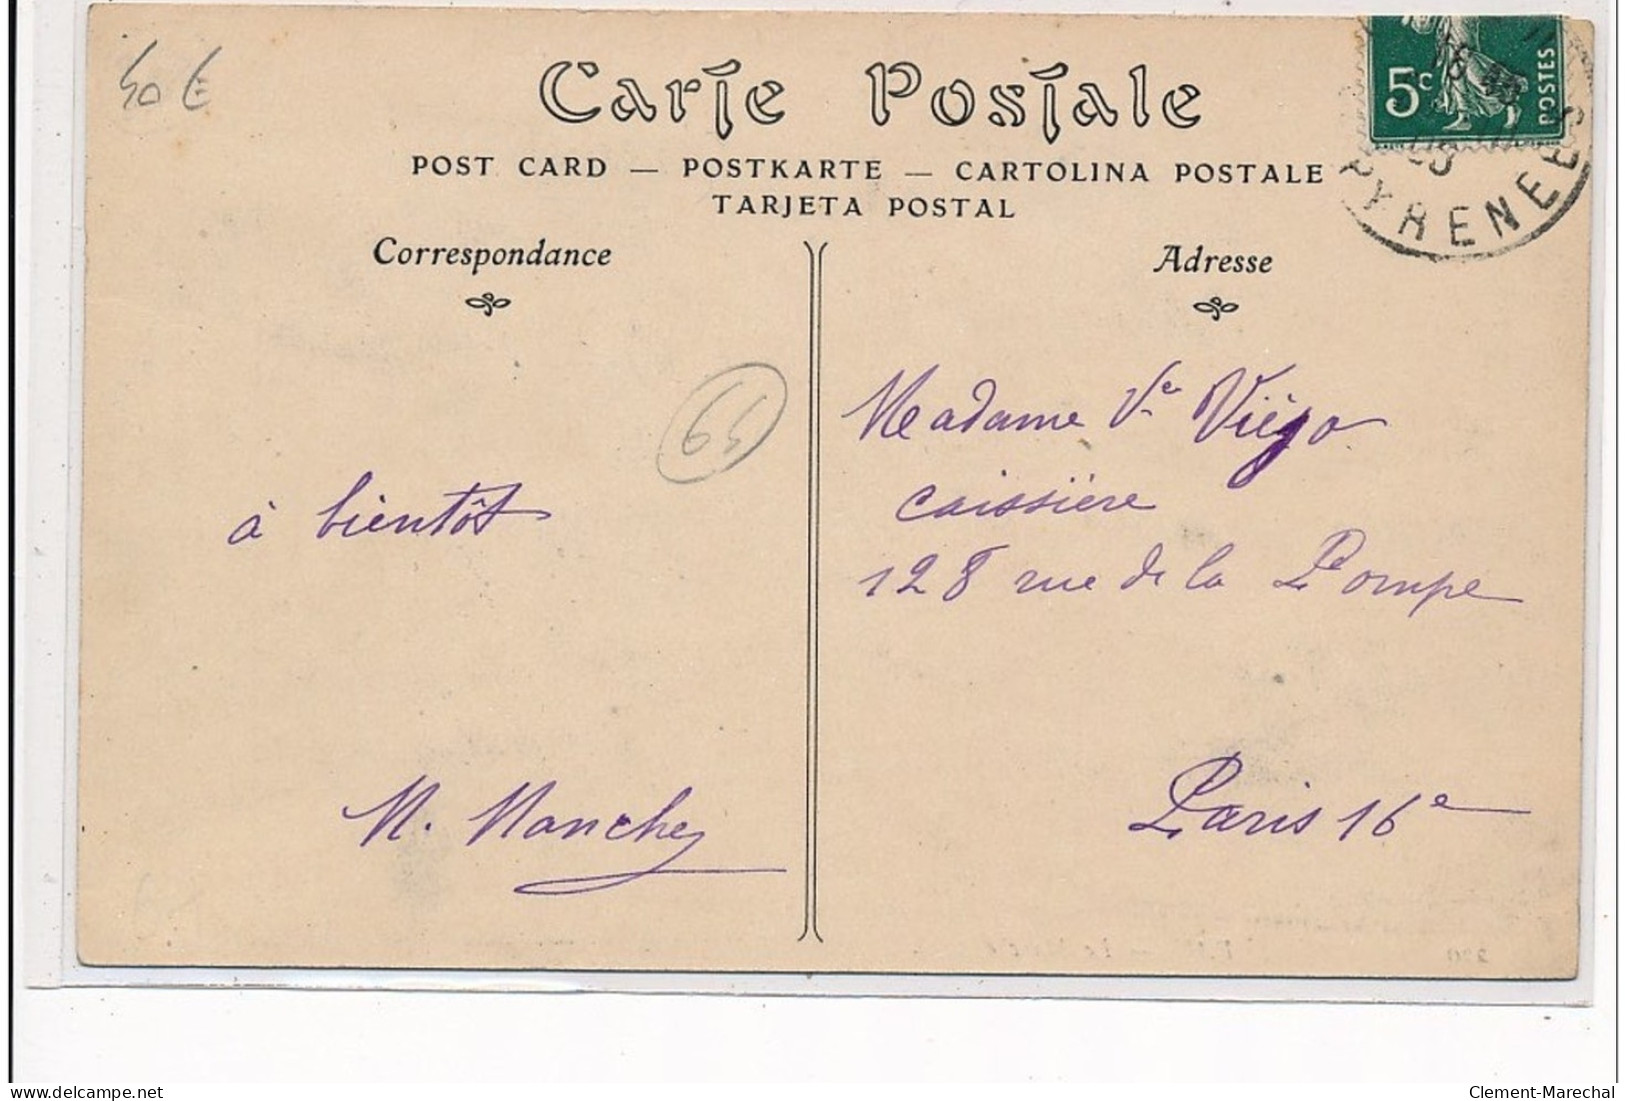 50 €
Carte Postale
5c POSTES
POST CARD — POSTKARTE — CARTOLINA POSTALE
TARJETA POSTAL
PYRENEES
Correspondance
Adresse
59
Madame Ve Viégo
caissière
à bientôt
128 rue de la Pompe
M. Manchez
Paris 16e
delcampe.net
Clement-Marechal